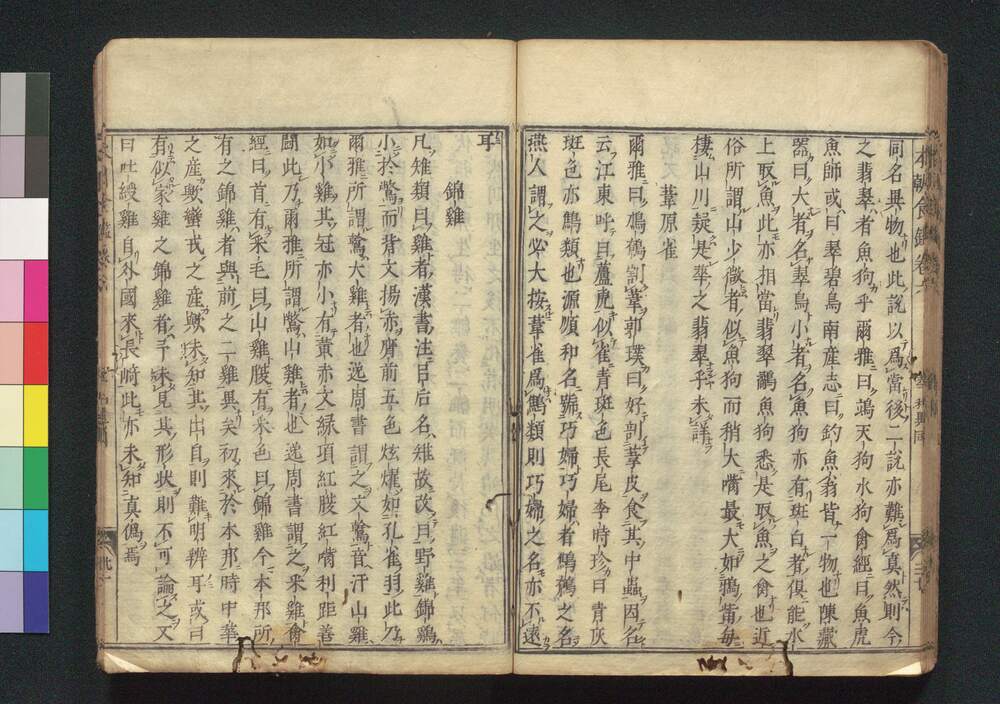 同名異物也此説以爲當後二説亦難爲真然則今
之翡翠者魚狗乎爾雅曰鴗天狗水狗禽經曰魚虎
魚師或曰翠碧鳥南産志曰釣魚翁皆一物也陳藏
器曰大者名翠鳥小者名魚狗亦有斑白者俱能水
上取魚此亦相當翡翠鸕魚狗悉是取魚之禽也近
俗所謂山少微者似魚狗而稍大嘴最大如鴉觜毎
棲山川疑是華之翡翠乎未詳
葦原雀
爾雅曰鳭鷯剖葦郭璞曰好剖葦皮食其中蟲因名
云江東呼曰蘆虎似雀青斑色長尾李時珍曰青灰
斑色亦鷦類也源順和名鷦巧婦巧婦者鷦鷯之名
燕人謂之必大按葦雀爲鷦類則巧婦之名亦不遠
耳
錦雞
凡雉類曰雞者漢書注吕后名雉故改曰野雞錦雞
小於鷩而背文揚赤膺前五色炫燿如孔雀羽此乃
爾雅所謂鶾天雞者也逸周書謂之文鶾音汗山雞
如小雞其冠亦小有黄赤文緑項紅腹紅嘴利距善
鬪此乃爾雅所謂鷩山雞者也逸周書謂之采雞禽
經曰首有采毛曰山雞腹有采色曰錦雞今本邦所
有之錦雞者與前之二雞異矣初來於本邦時中華
之産歟蠻戎之産歟未知其出自則難明辨耳或曰
有似家雞之錦雞者予未見其形状則不可論之又
曰吐綬雞自外國來長崎此亦未知真僞焉
本朝食鑑卷六